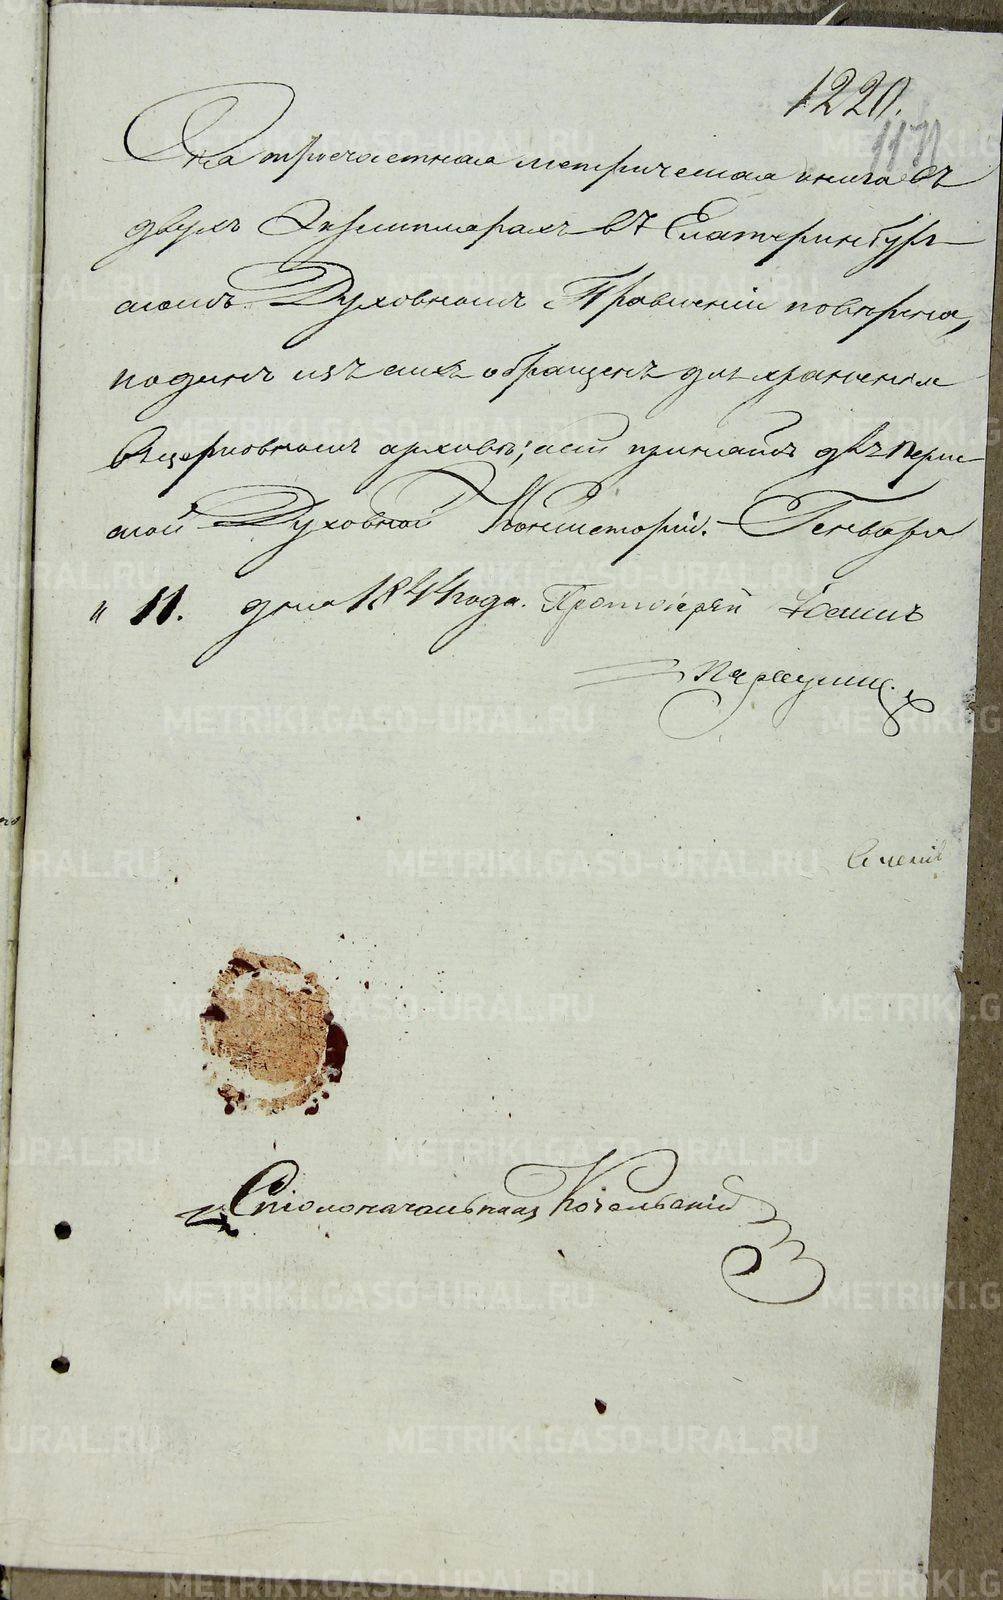 1220.
1171
Сиа троечастная метрическая книга въ
двухъ Экземплярахъ въ Екатеринбург
скомъ Духовномъ Правленіи поверена,
и одинъ изъ сихъ обращенъ для храненія
въ церковномъ архиве; а сей принятъ для Перм
ской Духовной Консисторіи. Генваря
„ 11. дня 1844 года. Протоіерей Іоаннъ
Столоначальникъ
METRIKI.GASO-URAL.RU